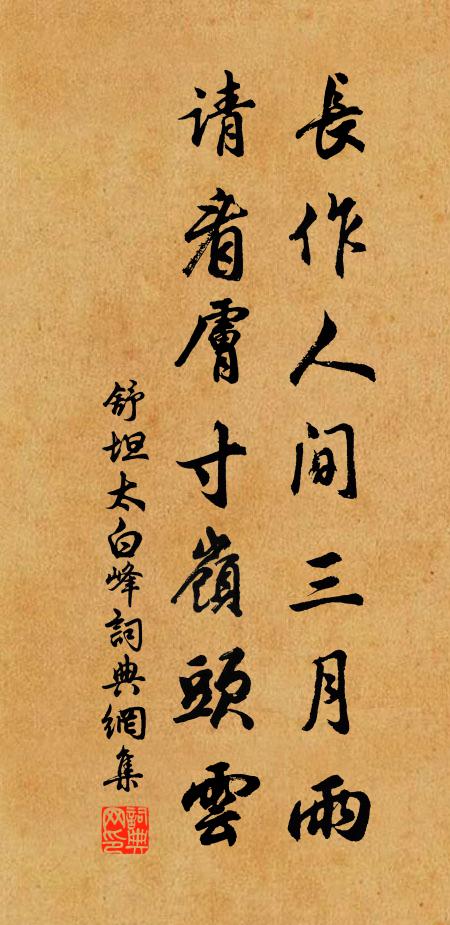 長作人间三月雨
请看膚寸嶺頭雲
舒坦太白峰詞典網集
詞典网印